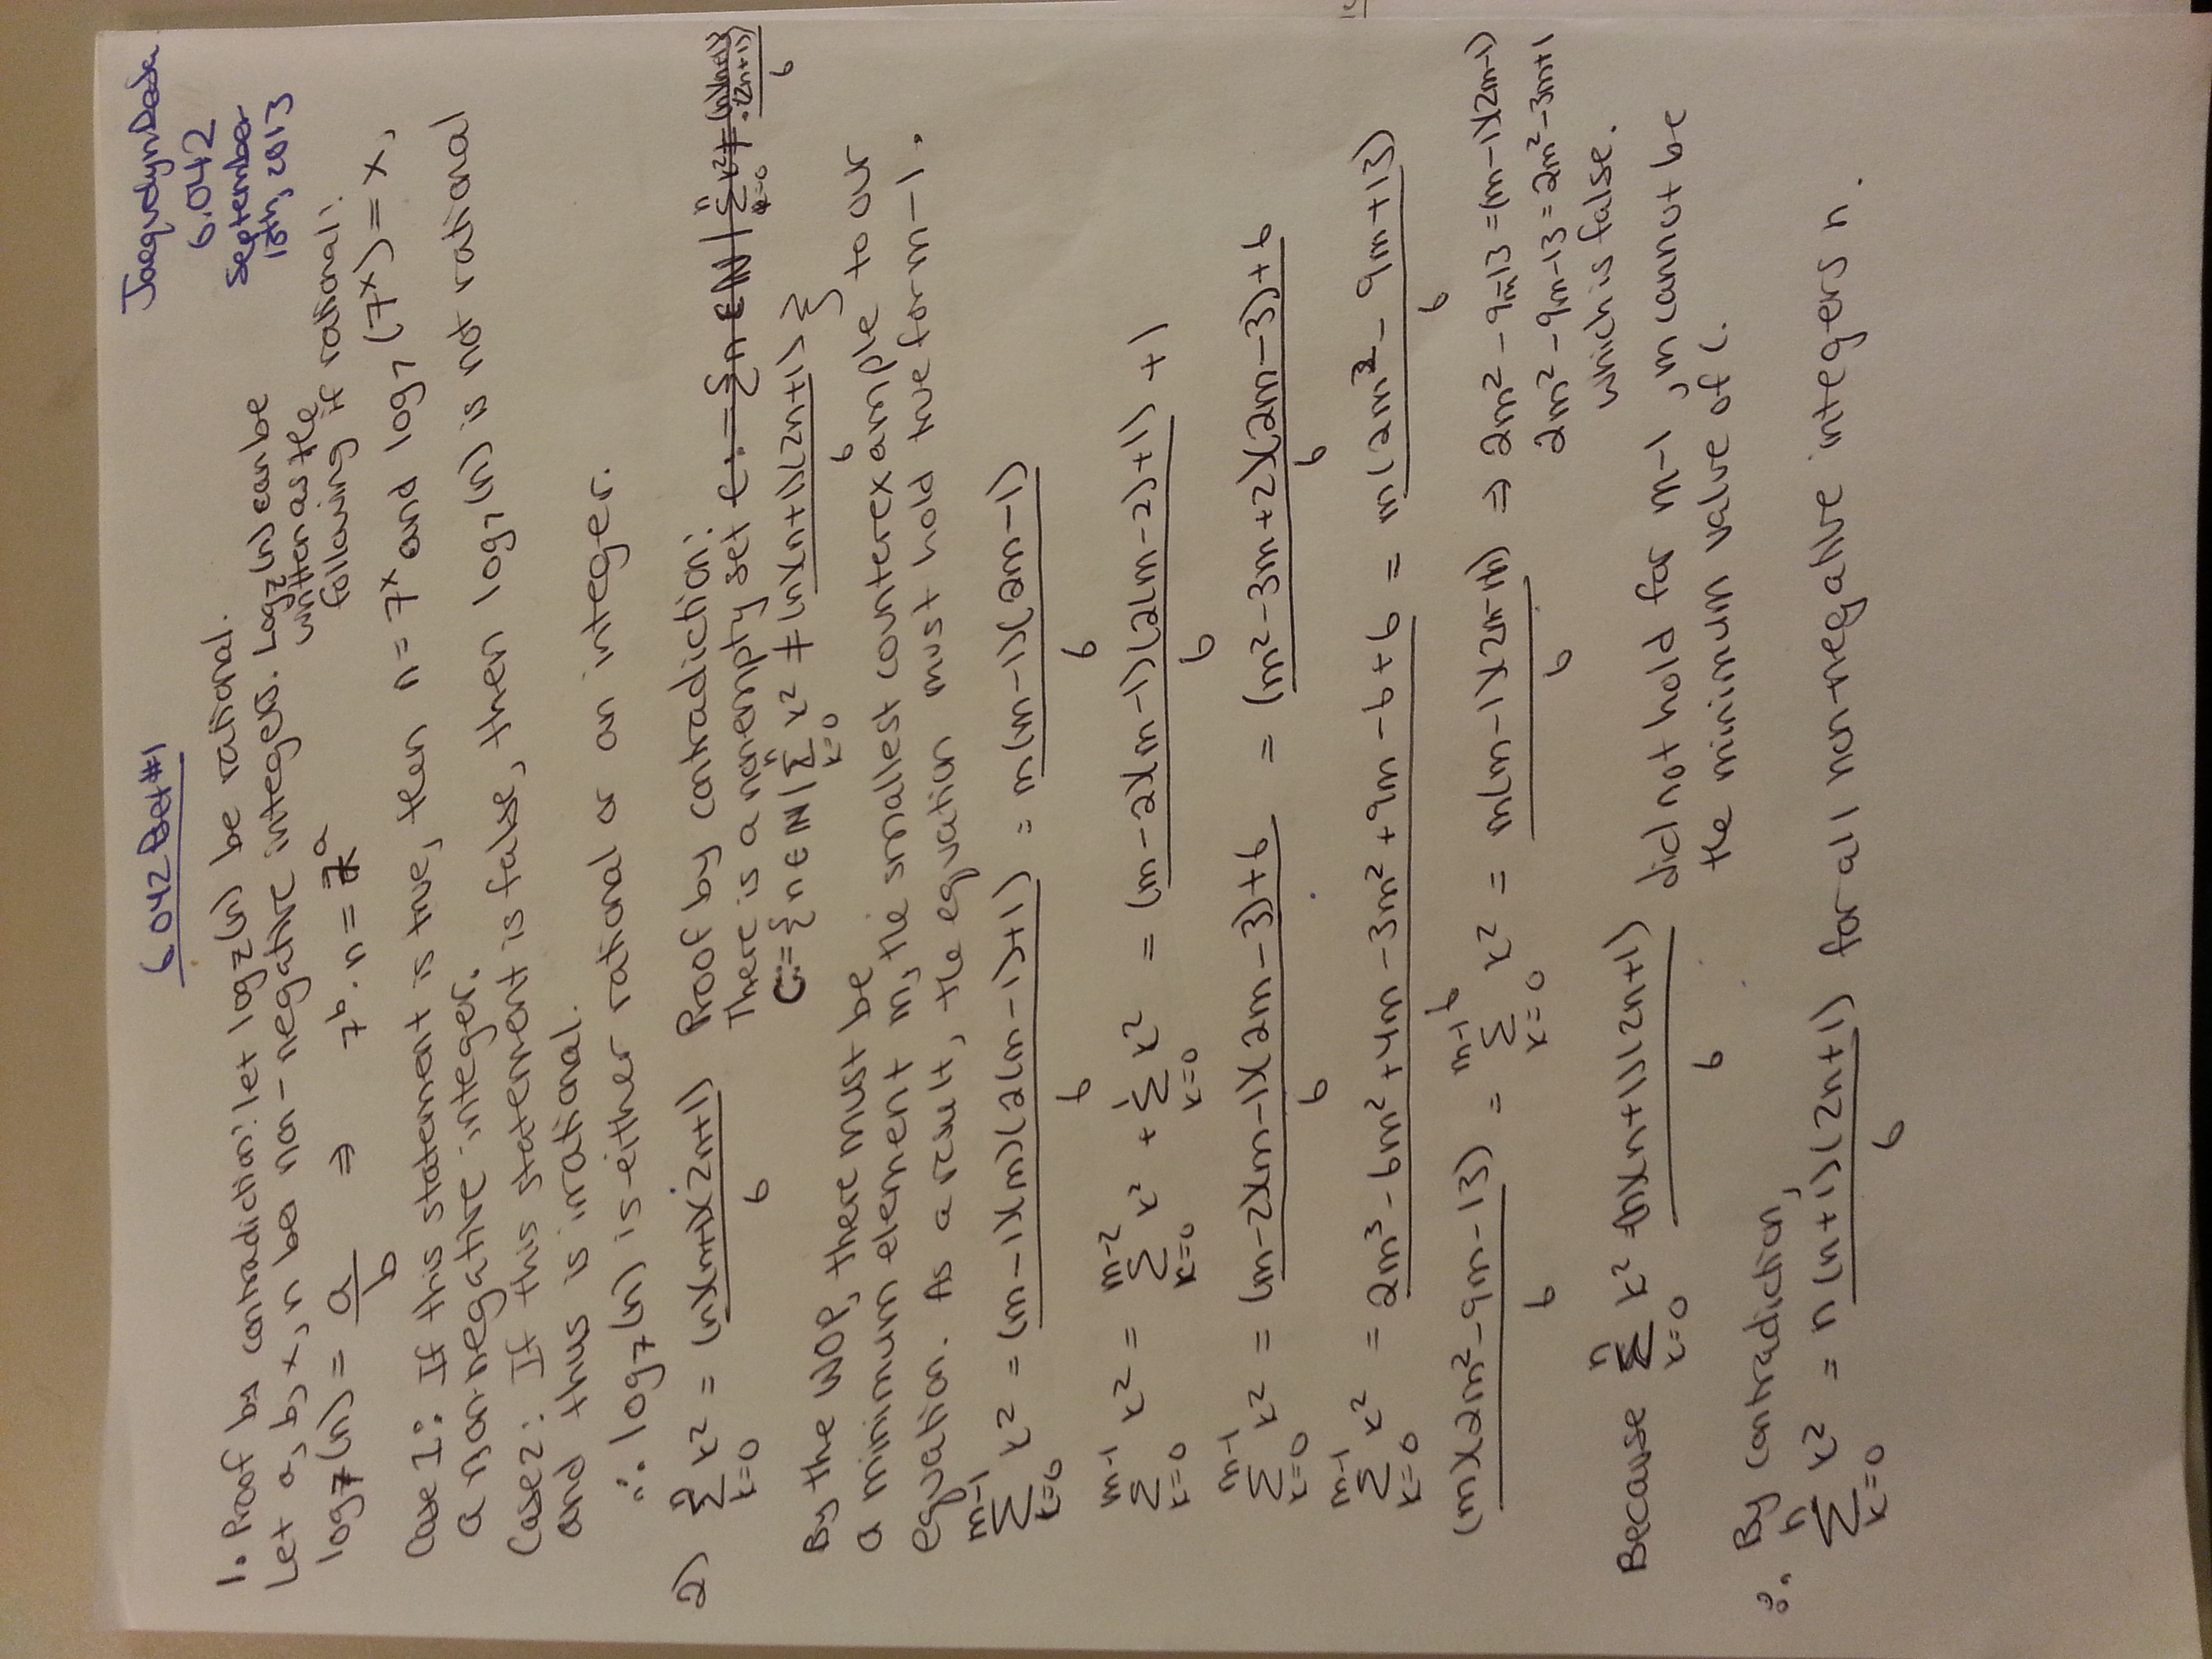 6.042 Pset #1
6.042
September
13th, 2013
1. Proof by contradiction: let log₇(n) be rational.
Let a, b, x, n be non-negative integers. Log₇(n) can be
written as the
following if rational:
log₇(n) = a/b ⇒ 7^b · n = 7^a
Case 1: If this statement is true, then n = 7^x and log₇(7^x) = x,
a non-negative integer.
Case 2: If this statement is false, then log₇(n) is not rational
and thus is irrational.
∴ log₇(n) is either rational or an integer.
2) Σ_{k=0}^{n} k² = (n)(n+1)(2n+1)/6 Proof by contradiction:
There is a nonempty set C := {n ∈ ℕ | Σ_{k=0}^{n} k² ≠ (n)(n+1)·(2n+1)/6
C := {n ∈ ℕ | Σ_{k=0}^{n} k² ≠ (n)(n+1)(2n+1)/6}
By the WOP, there must be
a minimum element m, the smallest counterexample to our
equation. As a result, the equation must hold true for m-1.
Σ_{k=0}^{m-1} k² = (m-1)(m)(2(m-1)+1)/6 = m(m-1)(2m-1)/6
Σ_{k=0}^{m-1} k² = Σ_{k=0}^{m-2} k² + Σ_{k=0}^{1} k² = (m-2)(m-1)(2(m-2)+1)/6 + 1
Σ_{k=0}^{m-1} k² = (m-2)(m-1)(2m-3)+6/6 = (m²-3m+2)(2m-3)+6/6
Σ_{k=0}^{m-1} k² = 2m³-6m²+4m-3m²+9m-6+6/6 = m(2m²-9m+13)/6
(m)(2m²-9m-13)/6 = Σ_{k=0}^{m-1} k² = m(m-1)(2m-1)/6 ⇒ 2m²-9m-13 = (m-1)(2m-1)
2m²-9m-13 = 2m²-3m+1
which is false.
Because Σ_{k=0}^{n} k² = (n)(n+1)(2n+1)/6 did not hold for m-1, m cannot be
the minimum value of C.
∴ By contradiction,
Σ_{k=0}^{n} k² = n(n+1)(2n+1)/6 for all non-negative integers n.